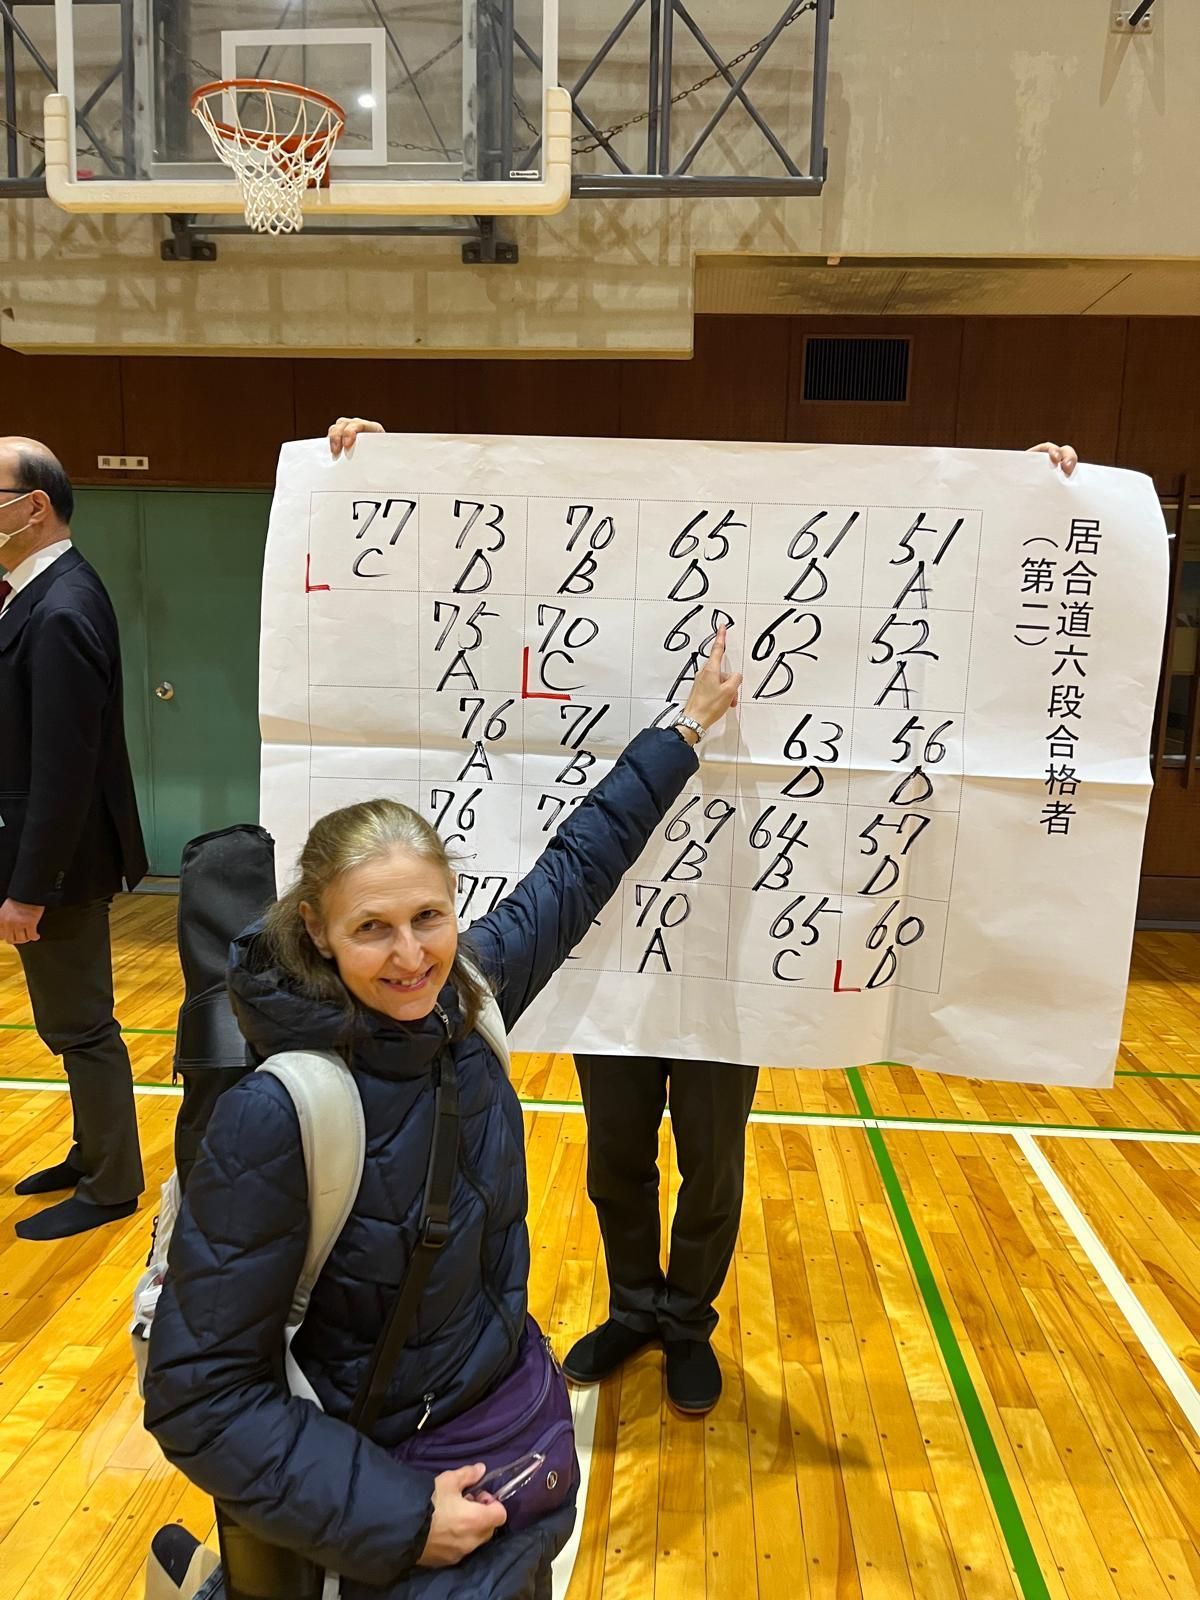 居合道六段合格者
（第二）
51
A
52
A
56
D
57
D
60
D
61
D
62
D
63
D
64
B
65
C
65
D
68
A
69
B
70
A
70
B
70
C
71
B
73
D
75
A
76
A
76
C
77
77
C
用具庫